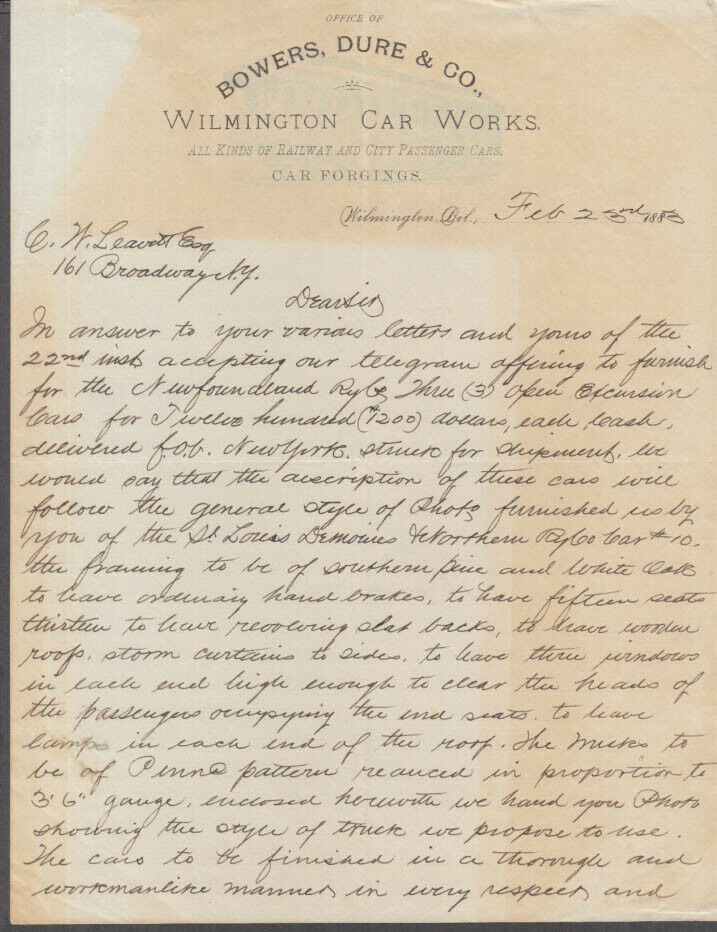 OFFICE OF
BOWERS, DURE & CO.,
WILMINGTON CAR WORKS.
ALL KINDS OF RAILWAY AND CITY PASSENGER CARS.
CAR FORGINGS.
Wilmington, Del., Feb 23rd 1883
C. W. Leavitt Esq
161 Broadway N.Y.
Dear Sir
In answer to your various letters and yours of the
22nd inst accepting our telegram offering to furnish
for the Newfoundland Ry Co Three (3) open Excursion
Cars for Twelve hundred ($1200) dollars, each, Cash,
delivered f.o.b. New York. struck for shipment. We
would say that the description of these cars will
follow the general style of Photo furnished us by
you of the St. Louis Demoines & Northern Ry Co Car #10.
the framing to be of southern pine and White Oak
to have ordinary hand brakes, to have fifteen seats
thirteen to have revolving slat backs, to have wooden
roofs. storm curtains to sides. to have three windows
in each end high enough to clear the heads of
the passengers occupying the end seats. to have
lamps in each end of the roof. The trucks to
be of Penna pattern reduced in proportion to
3'6" gauge. enclosed herewith we hand you Photo
showing the style of truck we propose to use.
The cars to be finished in a thorough and
workmanlike manner in every respect and